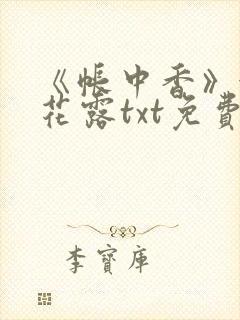 《帳中香》
花露txt免費
李寶庫